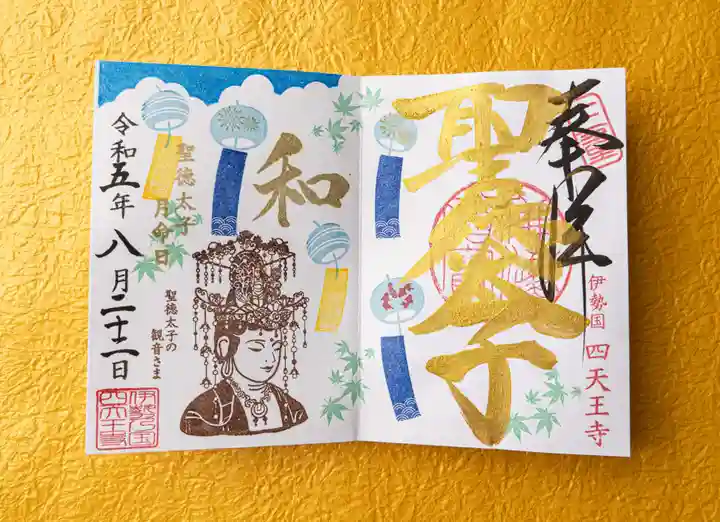 奉拝
伊勢国 四天王寺
聖徳太子
和
聖徳太子
月命日
聖徳太子の
観音さま
令和五年八月二十二日